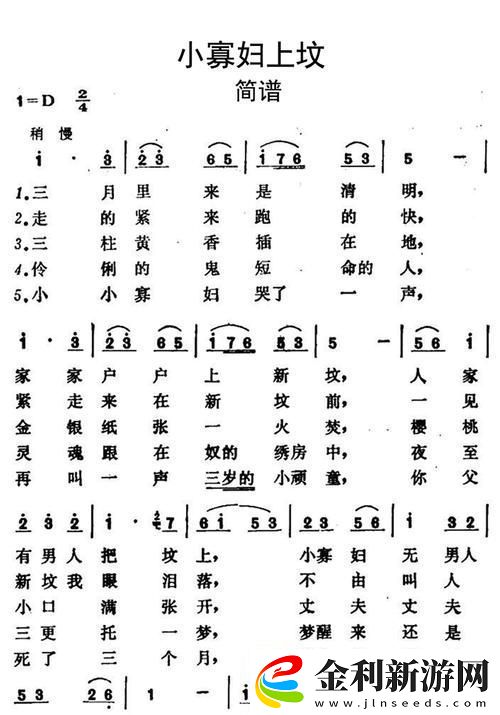 小寡妇上坟
简谱
1=D 2/4
稍 慢
i · 3 | 2 3 6 5 | i 7 6 5 3 | 5 - |
1.三 月 里 来 是 清 明，
2.走 的 紧 来 跑 的 快，
3.三 柱 黄 香 插 在 地，
4.伶 俐 的 鬼 短 命的 人，
5.小 小 寡 妇 哭了 一 声，
i · 3 | 2 3 6 5 | i 7 6 5 3 | 5 - | 5 6 i |
家 家 户 户 上 新 坟， 人 家
紧 走 来 在 新 坟 前， 一 见
金 银 纸 张 一 火 焚， 樱 桃
灵 魂 跟 在 奴的 绣房 中， 夜 至
再 叫 一 声 三岁的 小顽 童， 你 父
2 3 2 | i · 2 7 | 6 i 5 3 | 5 3 5 6 | i 3 2 |
有 男人 把 坟 上， 小寡 妇 无 男人
新 坟我 眼 泪 落， 不 由 叫 人
小 口 满 张 开， 丈 夫 丈 夫
三 更 托 一 梦， 梦醒 来 还 是
死 了 三 个 月，
5 3 2 6 | 1 - | i
金利新游网
www.jlnseeds.com